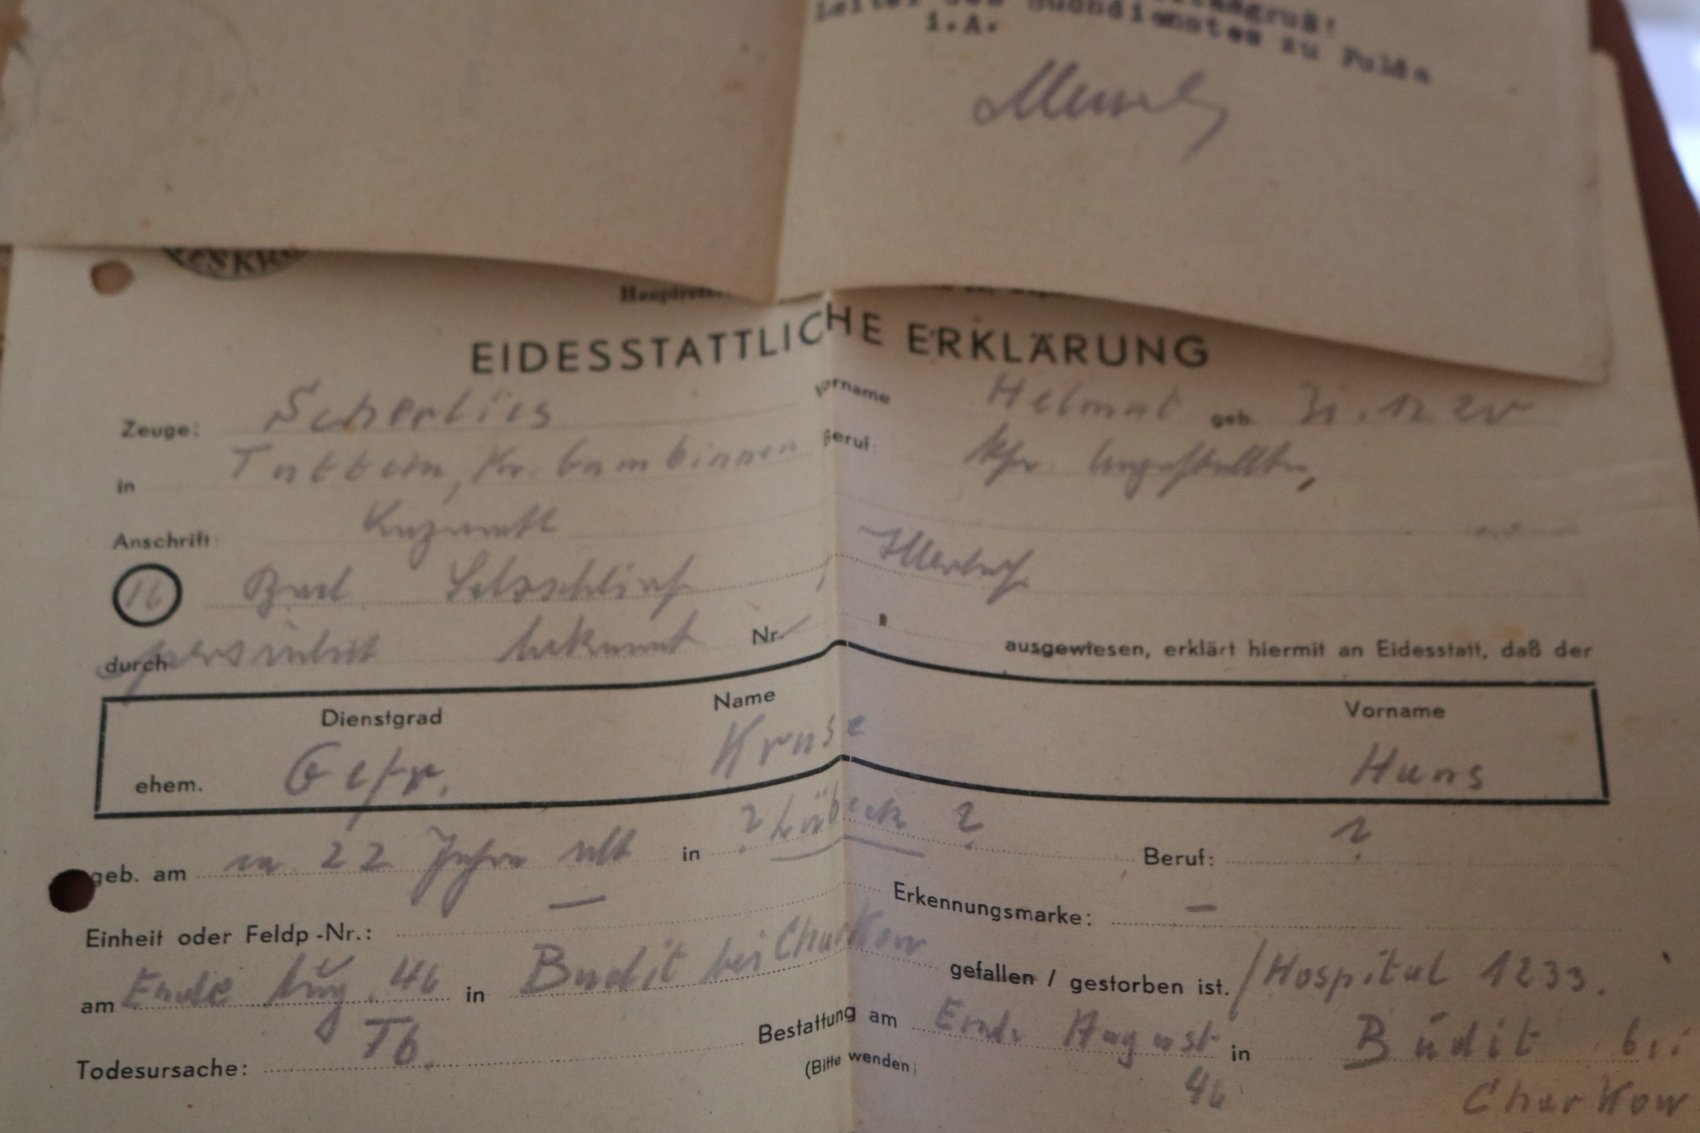 Suchdienstes zu Fulda
i.A.
EIDESSTATTLICHE ERKLÄRUNG
Zeuge: Scherlies Vorname Helmut geb.
in Kr. Gumbinnen Beruf: Angestellter,
Anschrift:
16 Bad Salzschlirf,
durch persönlich bekannt Nr. ausgewiesen, erklärt hiermit an Eidesstatt, daß der
Dienstgrad Name Vorname
ehem. Gefr. Kruse Hans
geb. am ca 22 Jahre alt in ? Lübeck ? Beruf: ?
Einheit oder Feldp-Nr.: — Erkennungsmarke: —
am Ende Aug. 46 in Budit bei Charkow gefallen / gestorben ist. / Hospital 1233.
Todesursache: Tb. Bestattung am Ende August 46 in Budit bei Charkow
(Bitte wenden)